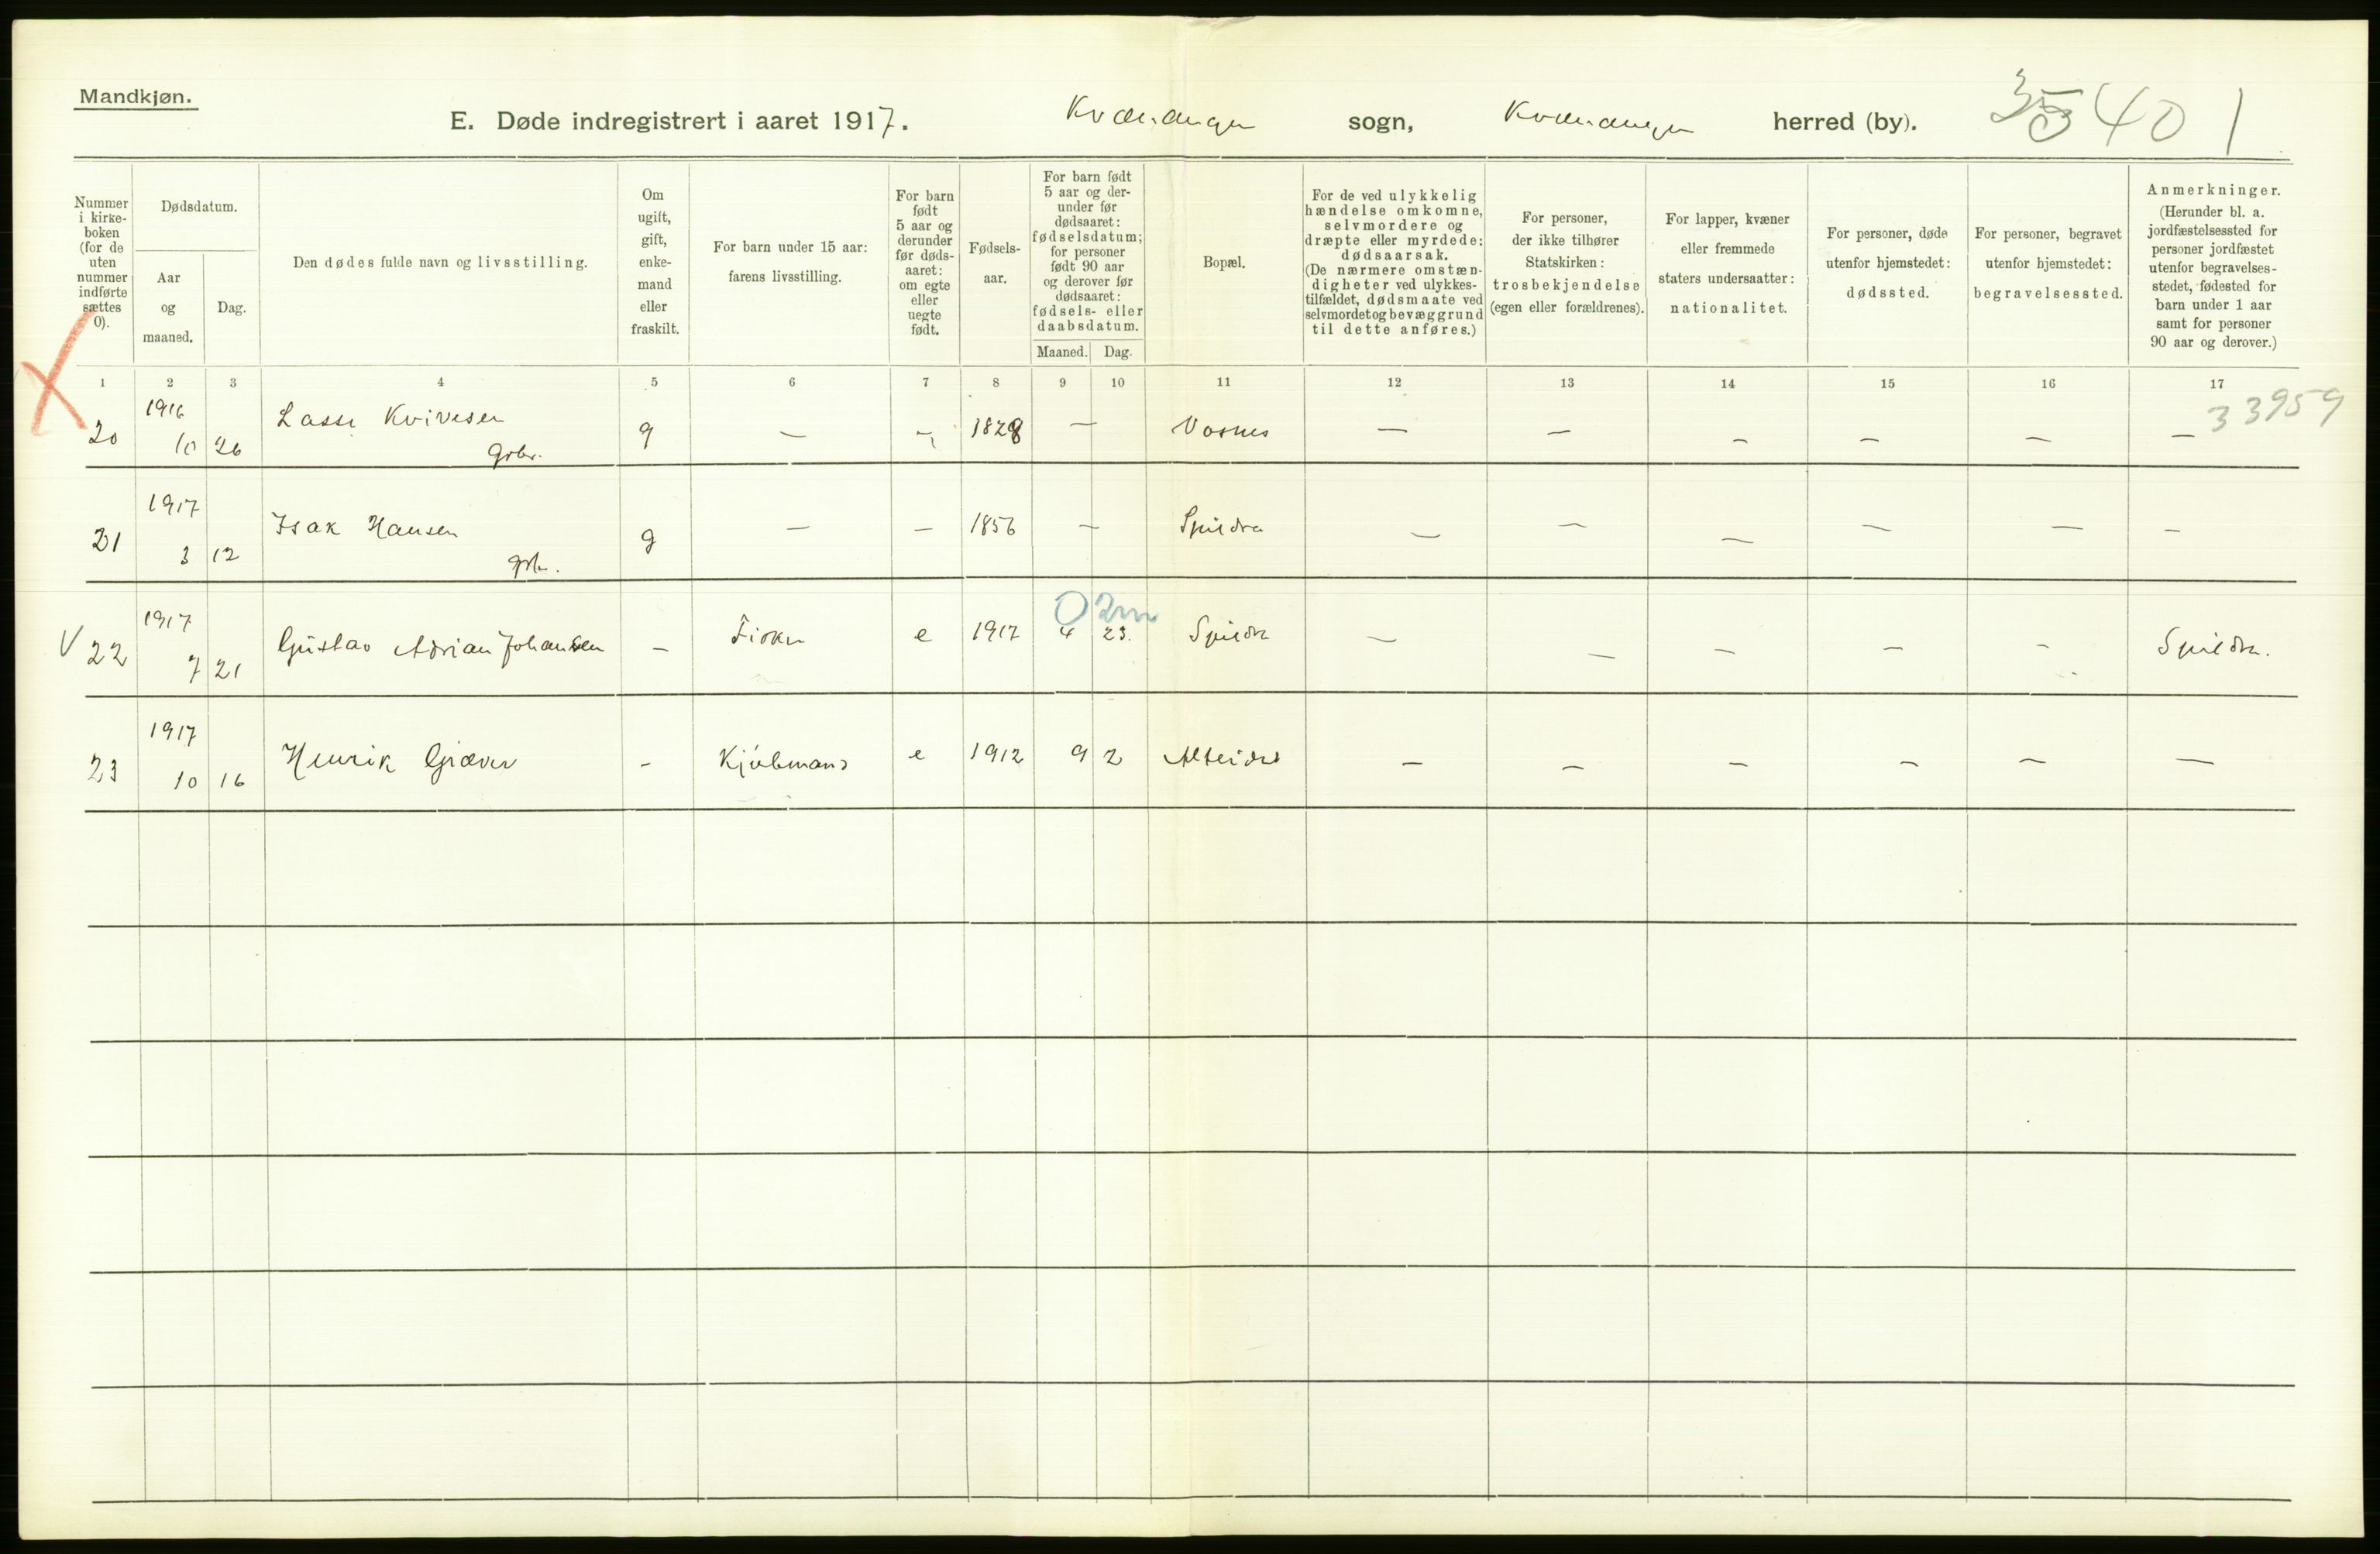 Mandkjøn.
E. Døde indregistrert i aaret 1917. Kvænangen sogn, Kvænangen herred (by). 40 1
Nummer i kirke-boken (for de uten nummer indførte sættes 0).
Dødsdatum.
Aar og maaned.
Dag.
Den dødes fulde navn og livsstilling.
Om ugift, gift, enke-mand eller fraskilt.
For barn under 15 aar: farens livsstilling.
For barn født 5 aar og derunder før døds-aaret: om egte eller uegte født.
Fødsels-aar.
For barn født 5 aar og der-under før dødsaaret: fødselsdatum; for personer født 90 aar og derover før dødsaaret: fødsels- eller daabsdatum.
Maaned. Dag.
Bopæl.
For de ved ulykkelig hændelse omkomne, selvmordere og dræpte eller myrdede: dødsaarsak. (De nærmere omstæn-digheter ved ulykkes-tilfældet, dødsmaate ved selvmordet og bevæggrund til dette anføres.)
For personer, der ikke tilhører Statskirken: trosbekjendelse (egen eller forældrenes).
For lapper, kvæner eller fremmede staters undersaatter: nationalitet.
For personer, døde utenfor hjemstedet: dødssted.
For personer, begravet utenfor hjemstedet: begravelsessted.
Anmerkninger. (Herunder bl. a. jordfæstelsessted for personer jordfæstet utenfor begravelses-stedet, fødested for barn under 1 aar samt for personer 90 aar og derover.)
1 2 3 4 5 6 7 8 9 10 11 12 13 14 15 16 17
33959
20 1916 10 26 Lasse Kvivesen grbr. g — — 1828 — Vasnes — — — — — —
21 1917 3 12 Isak Hansen grbr. g — — 1856 — Spildra — — — — — —
0 2m
V 22 1917 7 21 Gustav Adrian Johansen — Fisker e 1917 4 23. Spildra — — — — — Spildra.
23 1917 10 16 Henrik Giæver - Kjøbmand e 1912 9 2 Alteidet — — — — — —